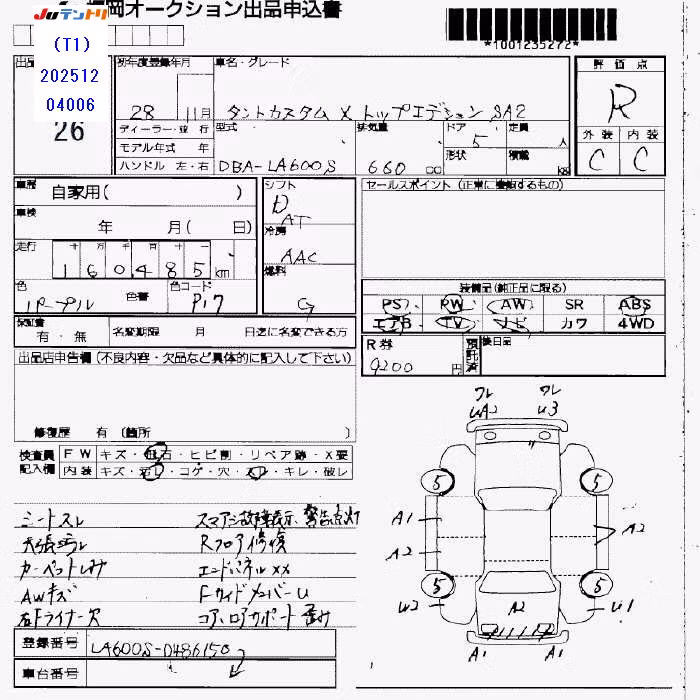 JUテントリ
福岡オークション出品申込書
(T1)
202512
04006
*1001235272*
出品
26
初年度登録年月
28 11月
車名・グレード
タントカスタム X トップエディション SA2
評価点
R
外装 内装
C C
ディーラー・並行
モデル年式 年
ハンドル 左・右
型式
DBA-LA600S
排気量
660 cc
ドア 5
形状
定員 人
積載 kg
車歴 自家用( )
車検 年 月( 日)
走行 十 万 千 百 十
160485km
色 パープル 色替
色コード P17
シフト
D AT
冷房
AAC
燃料
G
セールスポイント (正常に機能するもの)
装備品(純正品に限る)
PS PW AW SR ABS
エアB TV ナビ カワ 4WD
保証書 有・無
名変期限 月 日迄に名変できる方
R券 9200円
預託済
後日品
出品店申告欄 (不良内容・欠品など具体的に記入して下さい)
修復歴 有 (箇所 )
検査員記入欄
FW キズ・飛石・ヒビ割・リペア跡・X要
内装 キズ・汚レ・コゲ・穴・スレ・キレ・破レ
シートスレ
天張汚レ
カーペットしみ
AWキズ
右Fライナー欠
スマアシ故障表示、警告点灯
Rフロア修復
エンドパネルXX
FサイドメンバーU
コア、ロアサポート歪み
ワレ ワレ
UA2 U3
5 5
A1
A2
A2
5 5
U2 U1
A2
A1 A1
登録番号 LA600S-0486150
車台番号